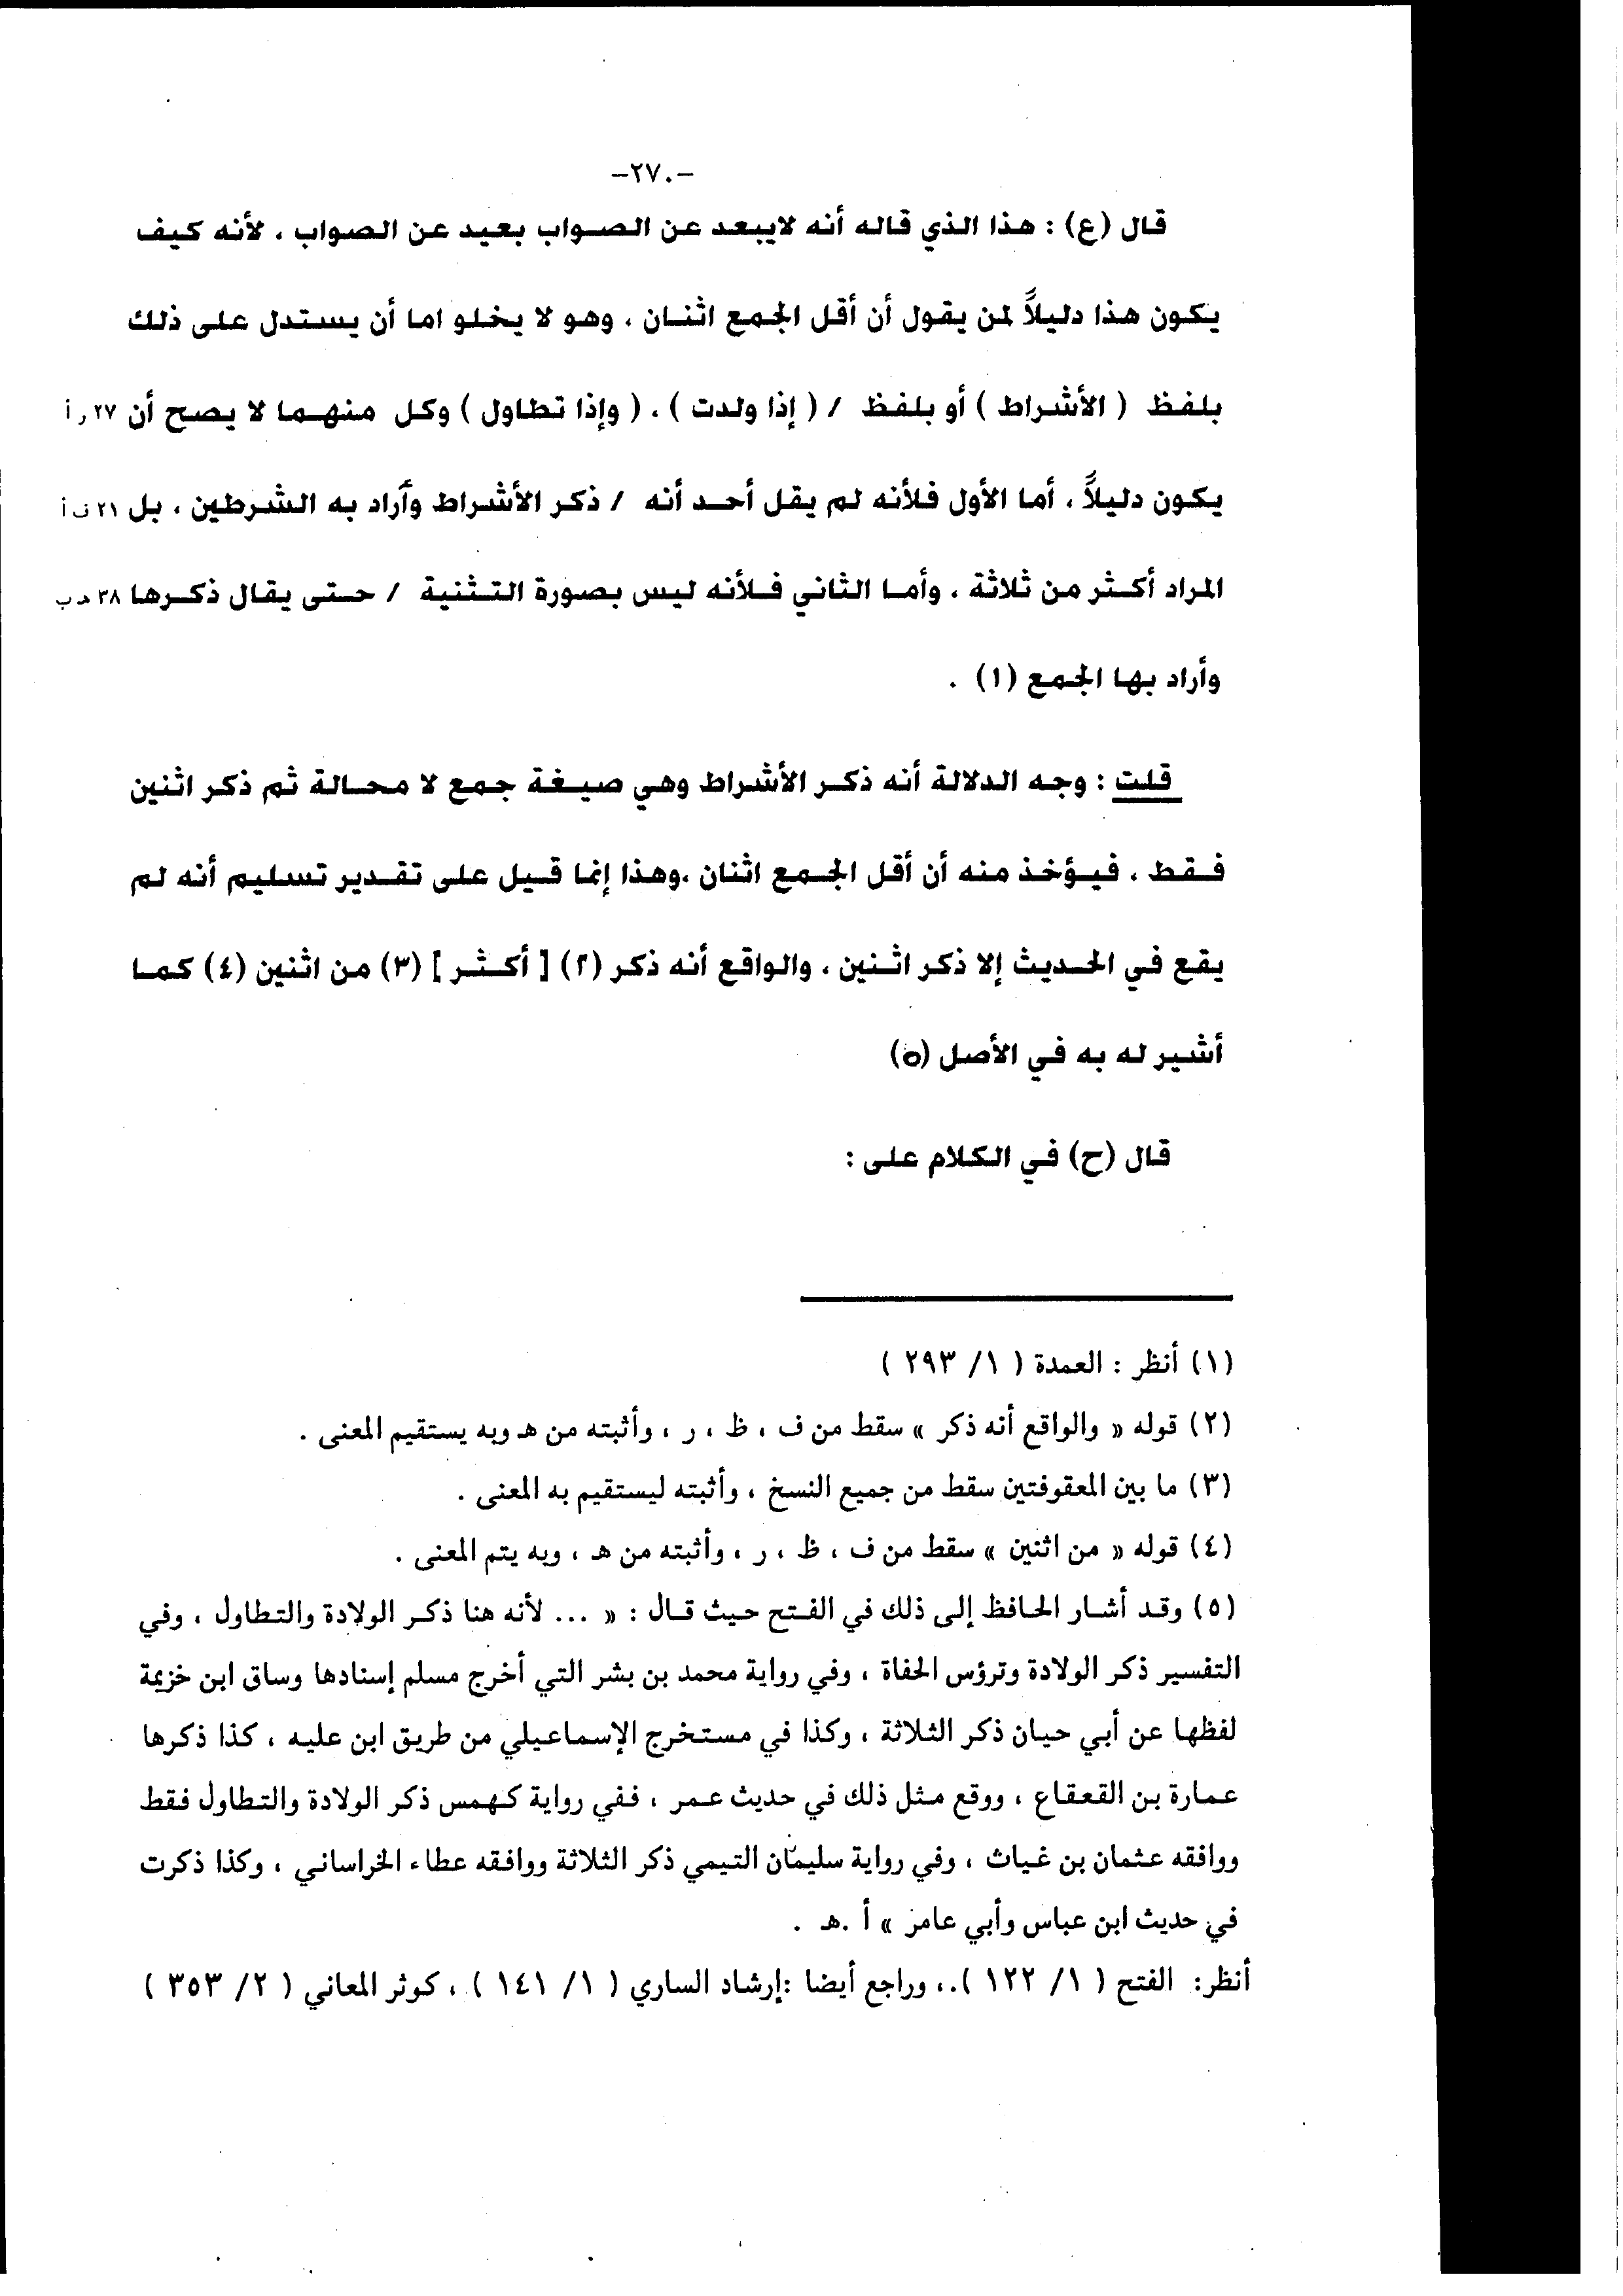 -٢٧٠-
قال (ع) : هذا الذي قاله أنه لايبعد عن الصواب بعيد عن الصواب ، لأنه كيف
يكون هذا دليلاً لمن يقول أن أقل الجمع اثنان ، وهو لا يخلو اما أن يستدل على ذلك
بلفظ ( الأشراط ) أو بلفظ / ( إذا ولدت ) ، ( وإذا تطاول ) وكل منهما لا يصح أن ٢٧ ر أ
يكون دليلاً ، أما الأول فلأنه لم يقل أحد أنه / ذكر الأشراط وأراد به الشرطين ، بل ٢١ ف أ
المراد أكثر من ثلاثة ، وأما الثاني فلأنه ليس بصورة التثنية / حتى يقال ذكرها ٣٨ هـ ب
وأراد بها الجمع (١) .
قلت : وجه الدلالة أنه ذكر الأشراط وهي صيغة جمع لا محالة ثم ذكر اثنين
فقط ، فيؤخذ منه أن أقل الجمع اثنان ،وهذا إنما قيل على تقدير تسليم أنه لم
يقع في الحديث إلا ذكر اثنين ، والواقع أنه ذكر (٢) [ أكثر ] (٣) من اثنين (٤) كما
أشير له به في الأصل (٥)
قال (ح) في الكلام على :
(١) أنظر : العمدة ( ١/ ٢٩٣ )
(٢) قوله « والواقع أنه ذكر » سقط من ف ، ظ ، ر ، وأثبته من هـ وبه يستقيم المعنى .
(٣) ما بين المعقوفتين سقط من جميع النسخ ، وأثبته ليستقيم به المعنى .
(٤) قوله « من اثنين » سقط من ف ، ظ ، ر ، وأثبته من هـ ، وبه يتم المعنى .
(٥) وقد أشار الحافظ إلى ذلك في الفتح حيث قال : « ... لأنه هنا ذكر الولادة والتطاول ، وفي
التفسير ذكر الولادة وترؤس الحفاة ، وفي رواية محمد بن بشر التي أخرج مسلم إسنادها وساق ابن خزيمة
لفظها عن أبي حيان ذكر الثلاثة ، وكذا في مستخرج الإسماعيلي من طريق ابن عليه ، كذا ذكرها
عمارة بن القعقاع ، ووقع مثل ذلك في حديث عمر ، ففي رواية كهمس ذكر الولادة والتطاول فقط
ووافقه عثمان بن غياث ، وفي رواية سليمان التيمي ذكر الثلاثة ووافقه عطاء الخراساني ، وكذا ذكرت
في حديث ابن عباس وأبي عامر » أ .هـ .
أنظر: الفتح ( ١/ ١٢٢ )،. وراجع أيضا :إرشاد الساري ( ١/ ١٤١ ) ، كوثر المعاني ( ٢/ ٣٥٣ )